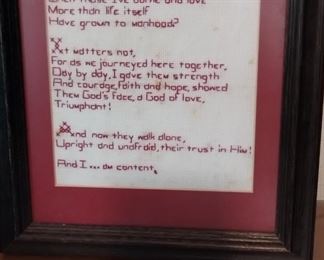 More than life itself
Have grown to manhood?
It matters not,
For as we journeyed here together,
Day by day, I gave them strength
And courage, faith and hope, showed
Them God's face, a God of love,
Triumphant!
And now they walk alone,
Upright and unafraid, their trust in Him!
And I...am content.